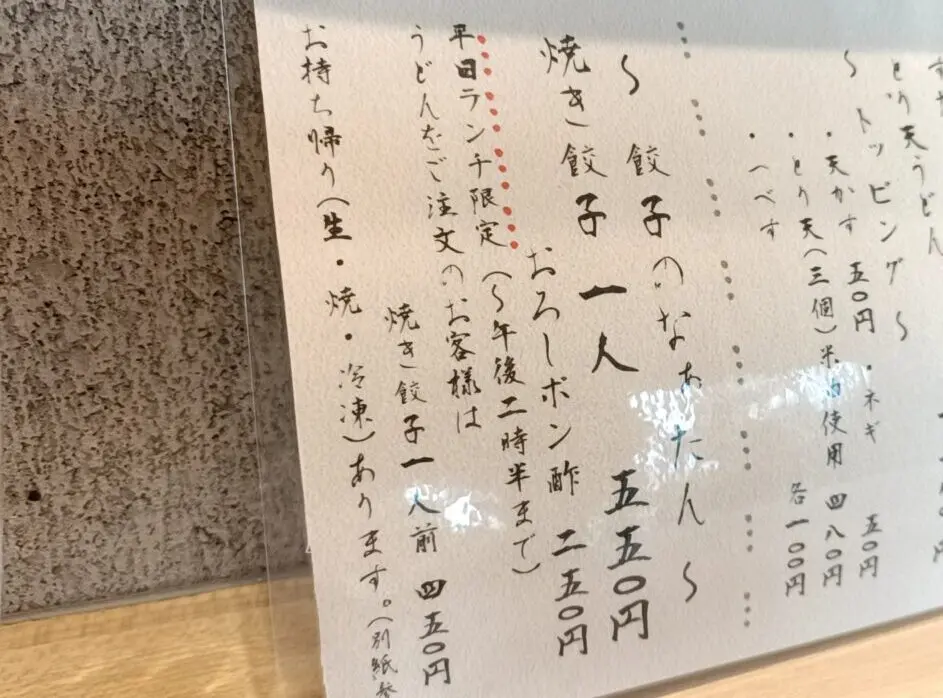 とり天うどん
～トッピング～
・天かす 五〇円 ・ネギ 五〇円
・とり天(三個)米油使用 四八〇円
・へべす 各一〇〇円
～餃子のなあたん～
焼き餃子 一人 五五〇円
おろしポン酢 二五〇円
平日ランチ限定(～午後二時半まで)
うどんをご注文のお客様は
焼き餃子一人前 四五〇円
お持ち帰り(生・焼・冷凍)あります。(別紙参